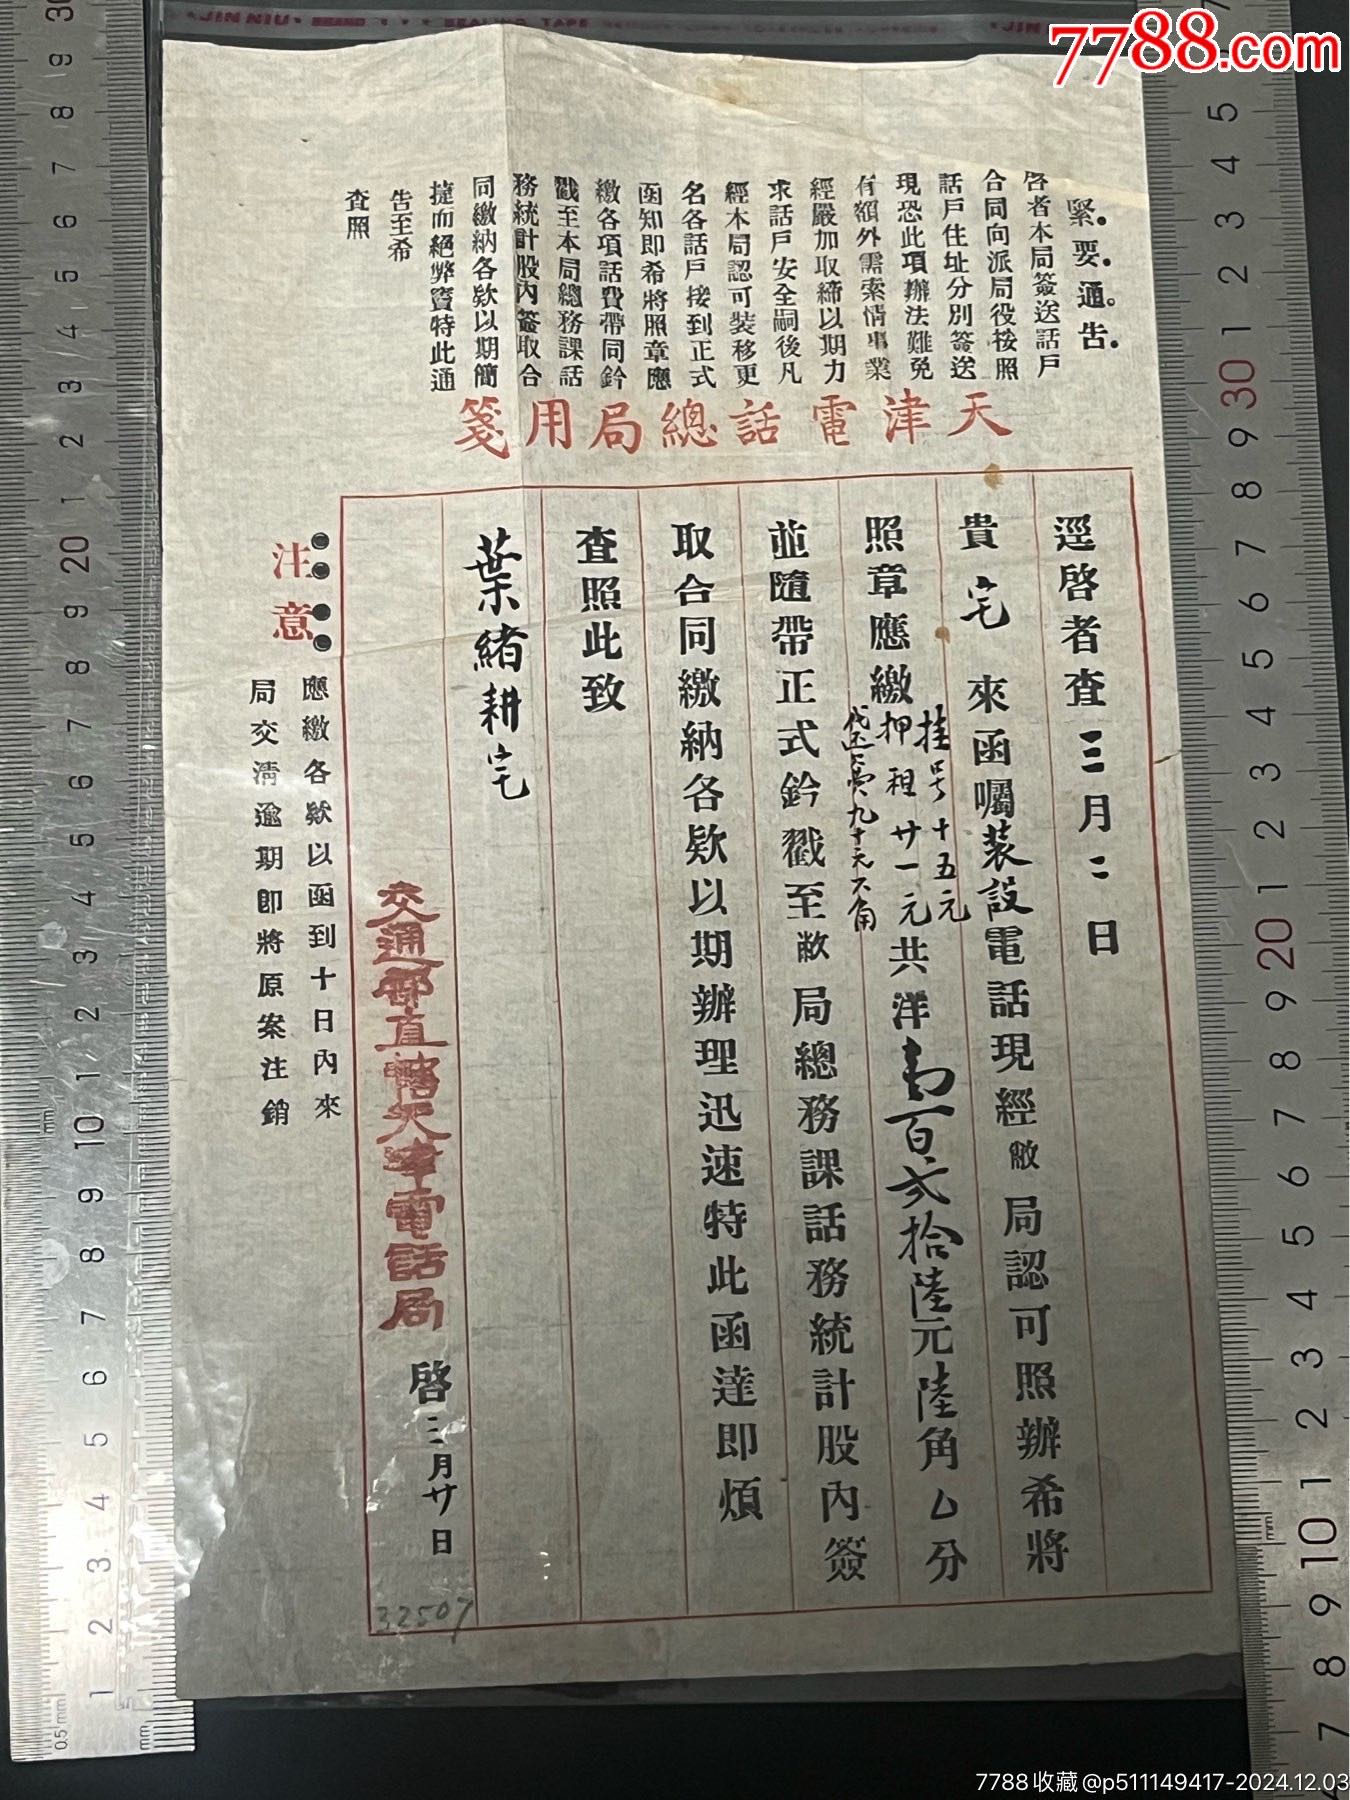 7788.com
緊要通告
啓者本局簽送話戶
合同向派局役按照
話戶住址分別簽送
現恐此項辦法難免
有額外需索情事業
經嚴加取締以期力
求話戶安全嗣後凡
經本局認可裝移更
名各話戶接到正式
函知即希將照章應
繳各項話費帶同鈐
戳至本局總務課話
務統計股內簽取合
同繳納各欵以期簡
捷而絕弊竇特此通
告至希
查照
天津電話總局用箋
逕啓者查三月二日
貴宅來函囑裝設電話現經敝局認可照辦希將
照章應繳
挂号十五元
押租廿一元
九十元六角
共洋壹百弍拾陸元陸角〇分
並隨帶正式鈐戳至敝局總務課話務統計股內簽
取合同繳納各欵以期辦理迅速特此函達即煩
查照此致
葉緒耕宅
交通部直轄天津電話局啓三月廿日
32507
注意
應繳各欵以函到十日內來
局交清逾期即將原案注銷
7788收藏@p511149417-2024.12.03